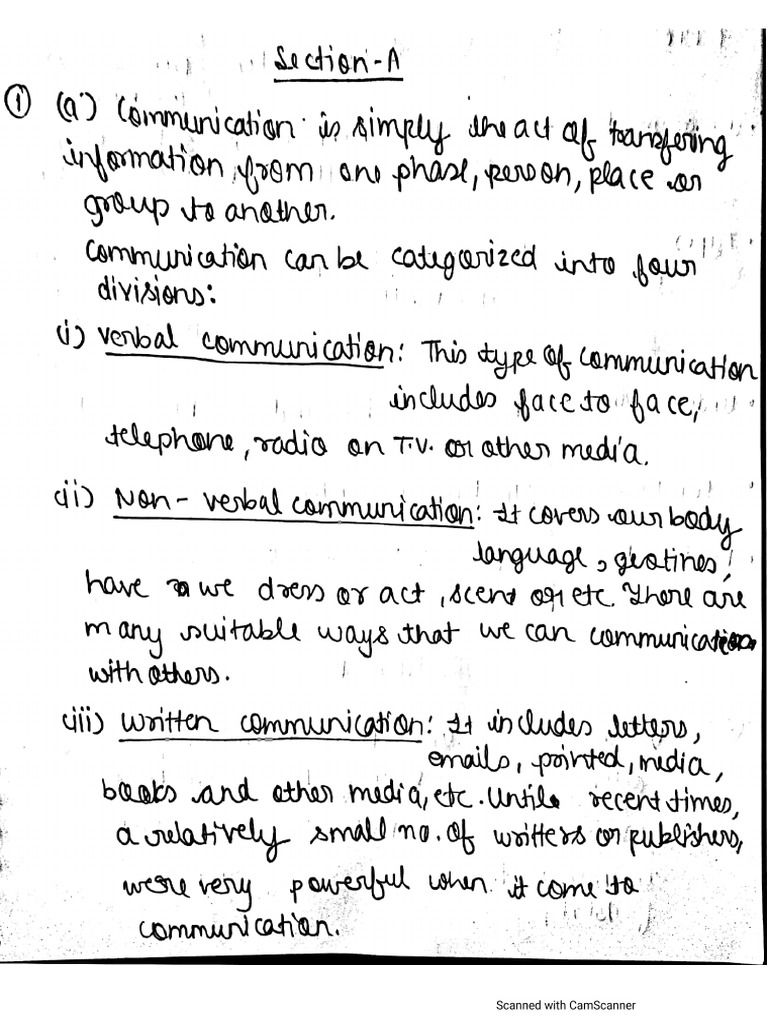 Section-A
① (a) Communication is simply the act of transfering
information from one phase, person, place or
group to another.
Communication can be categorized into four
divisions:
(i) Verbal communication: This type of communication
includes face to face,
telephone, radio on T.V. or other media.
(ii) Non-verbal communication: It covers our body
language,
have we dress or act, scent or etc. There are
many suitable ways that we can communication
with others.
(iii) Written communication: It includes letters,
emails, printed, media,
books and other media, etc. Until recent times,
a relatively small no. of writters or publishers,
were very powerful when it come to
communication.
Scanned with CamScanner